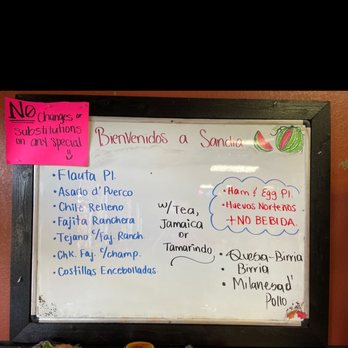 No Changes or
substitutions
on any special
Bienvenidos a Sandia
• Flauta Pl.
• Asado d' Puerco
• Chile Relleno
• Fajita Ranchera
• Tejano c/Faj. Ranch.
• Chk. Faj. c/champ.
• Costillas Encebolladas
w/ Tea,
Jamaica
or
Tamarindo
• Ham & Egg Pl
• Huevos Norteños
+ NO BEBIDA
• Quesa-Birria
• Birria
• Milanesa d'
Pollo